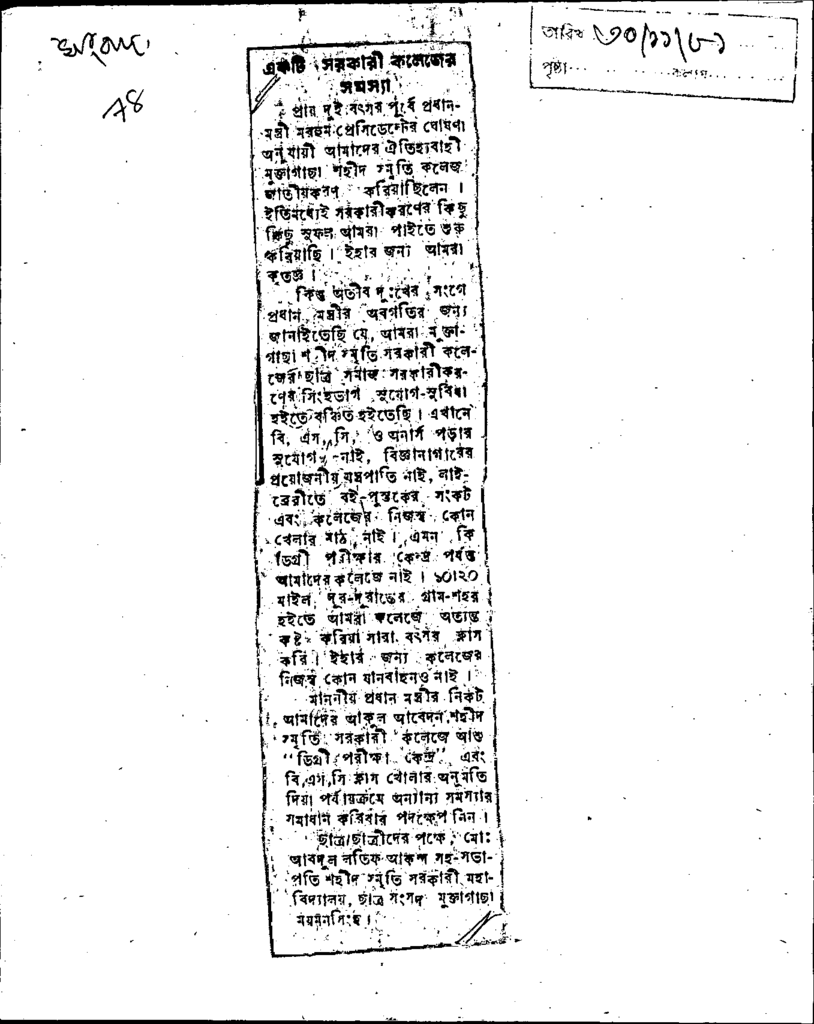 তারিখ ৩০/১১/৮১
পৃষ্ঠা... কলাম...
একটি সরকারী কলেজের
সমস্যা
প্রায় দুই বৎসর পূর্বে প্রধান-
মন্ত্রী মরহুম প্রেসিডেন্টের ঘোষণা
অনুযায়ী আমাদের ঐতিহ্যবাহী
মুক্তাগাছা শহীদ স্মৃতি কলেজ
জাতীয়করণ করিয়াছিলেন।
ইতিমধ্যেই সরকারীকরণের কিছু
কিছু সুফল আমরা পাইতে শুরু
করিয়াছি। ইহার জন্য আমরা
কৃতজ্ঞ।
কিন্তু অতীব দুঃখের সংগে
প্রধান মন্ত্রীর অবগতির জন্য
জানাইতেছি যে, আমরা মুক্তা-
গাছা শহীদ স্মৃতি সরকারী কলে-
জের ছাত্র সমাজ সরকারীকর-
ণের সিংহভাগ সুযোগ-সুবিধা
হইতে বঞ্চিত হইতেছি। এখানে
বি, এস, সি, ও অনার্স পড়ার
সুযোগ নাই, বিজ্ঞানাগারের
প্রয়োজনীয় যন্ত্রপাতি নাই, লাই-
ব্রেরীতে বই-পুস্তকের সংকট
এবং কলেজের নিজস্ব কোন
খেলার মাঠ নাই। এমন কি
ডিগ্রী পরীক্ষার কেন্দ্র পর্যন্ত
আমাদের কলেজে নাই। ১০।২০
মাইল দূর-দূরান্তের গ্রাম-শহর
হইতে আমরা কলেজে অত্যন্ত
কষ্ট করিয়া সারা বৎসর ক্লাস
করি। ইহার জন্য কলেজের
নিজস্ব কোন যানবাহনও নাই।
মাননীয় প্রধান মন্ত্রীর নিকট
আমাদের আকুল আবেদন শহীদ
স্মৃতি সরকারী কলেজে আশু
"ডিগ্রী পরীক্ষা কেন্দ্র" এবং
বি,এস,সি ক্লাস খোলার অনুমতি
দিয়া পর্যায়ক্রমে অন্যান্য সমস্যার
সমাধান করিবার পদক্ষেপ নিন।
ছাত্র/ছাত্রীদের পক্ষে, মোঃ
আবদুল লতিফ আকন্দ সহ-সভা-
পতি শহীদ স্মৃতি সরকারী মহা-
বিদ্যালয়, ছাত্র সংসদ মুক্তাগাছা
ময়মনসিংহ।